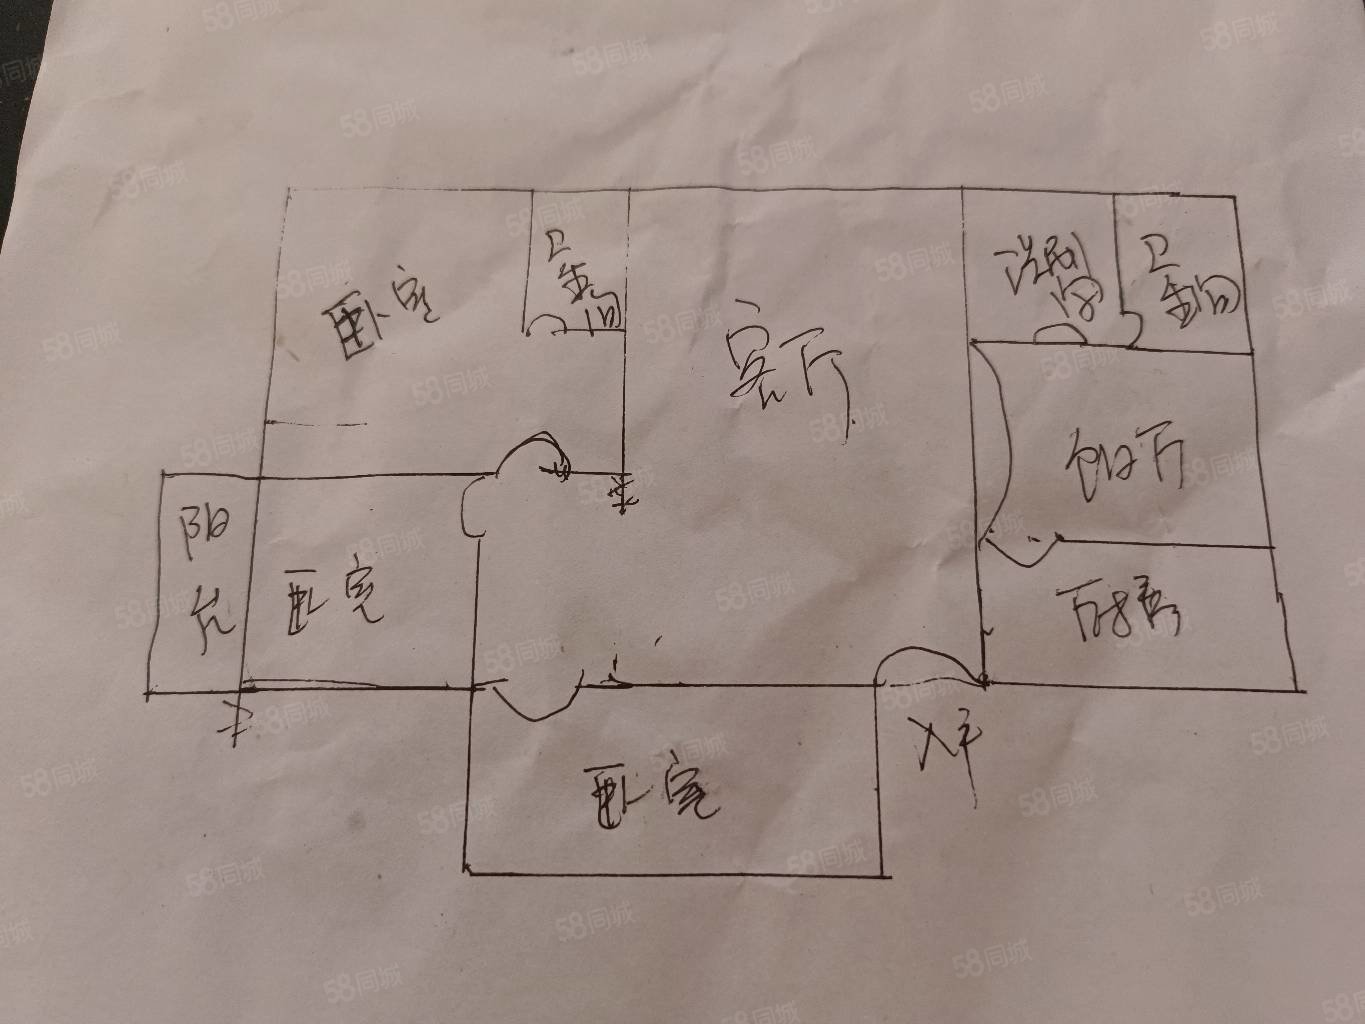 卧室
卫
生间
客厅
洗刷
间
卫
生间
阳
台
卧室
餐厅
厨房
卧室
入户
58同城